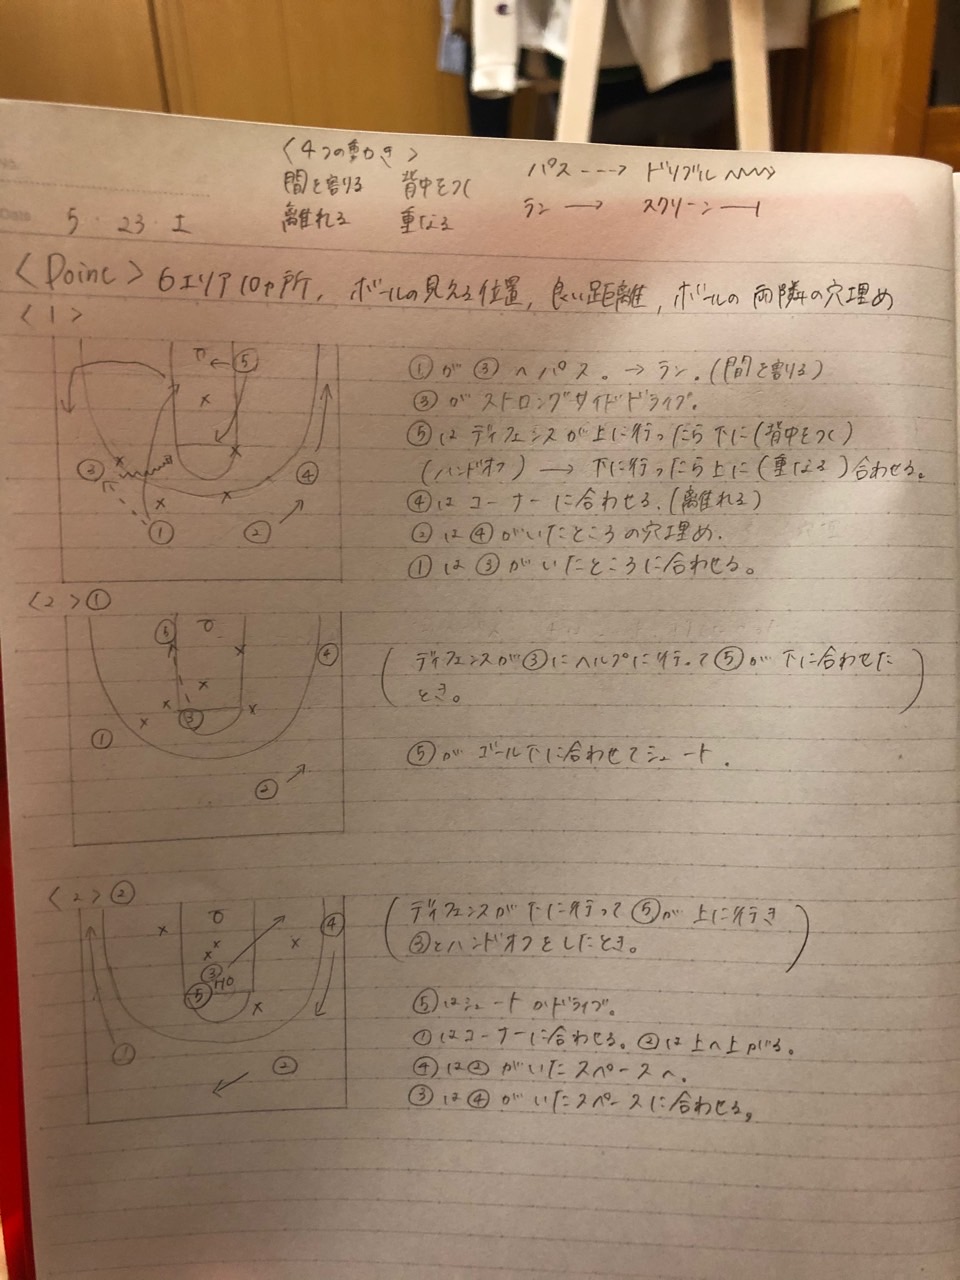 〈4つの動き〉
間を割る 背中をつく
離れる 重なる
パス ---→ ドリブル
ラン → スクリーン ―|
5・23・土
〈Poinc〉6エリア10ヶ所, ボールの見える位置, 良い距離, ボールの両隣の穴埋め
〈1〉
⑤
×
×
×
③
④
×
×
①
②
①が③へパス。→ラン.(間を割る)
③がストロングサイドドライブ。
⑤はディフェンスが上に行ったら下に(背中をつく)
(ハンドオフ)→下に行ったら上に(重なる)合わせる。
④はコーナーに合わせる.(離れる)
②は④がいたところの穴埋め.
①は③がいたところに合わせる。
〈2〉①
⑤
×
④
×
×
③
×
×
①
②
(ディフェンスが③にヘルプに行って⑤が下に合わせた
とき。)
⑤がゴール下に合わせてシュート.
〈2〉②
×
×
×
×
④
③
HO
⑤
×
①
②
(ディフェンスが下に行って⑤が上に行き
③とハンドオフをしたとき。)
⑤はシュートかドライブ。
①はコーナーに合わせる。②は上へ上がる。
④は②がいたスペースへ.
③は④がいたスペースに合わせる。